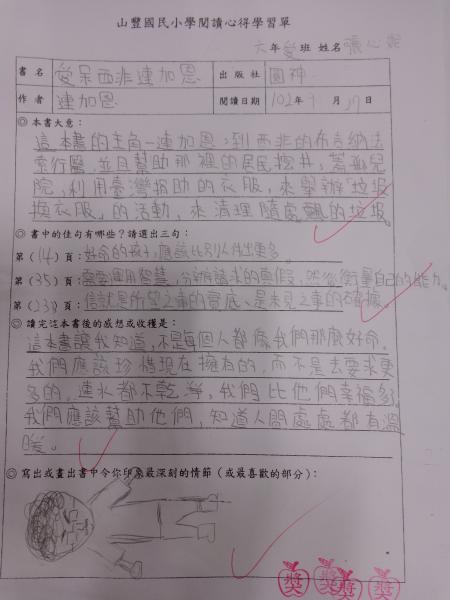 山豐國民小學閱讀心得學習單
六年愛班 姓名 張心
書名 愛呆西非連加恩 出版社 圓神
作者 連加恩 閱讀日期 102年9月17日
◎本書大意：
這本書的主角—連加恩，到西非的布吉納法
索行醫，並且幫助那裡的居民挖井，蓋孤兒
院，利用臺灣捐助的衣服，來舉辦「垃圾
換衣服」的活動，來清理隨處飄的垃圾。
◎書中的佳句有哪些？請選出三句：
第（14）頁：好命的孩子，應該比別人付出更多。
第（35）頁：需要運用智慧，分辨請求的真假，然後衡量自己的能力。
第（23）頁：信就是所望之事的實底、是未見之事的確據。
◎讀完這本書後的感想或收穫是：
這本書讓我知道，不是每個人都像我們那麼好命。
我們應該珍惜現在擁有的，而不是去要求更
多的，連水都不乾淨，我們比他們幸福多，
我們應該幫助他們，知道人間處處都有溫
暖。
◎寫出或畫出書中令你印象最深刻的情節（或最喜歡的部分）：
獎 獎 獎 獎